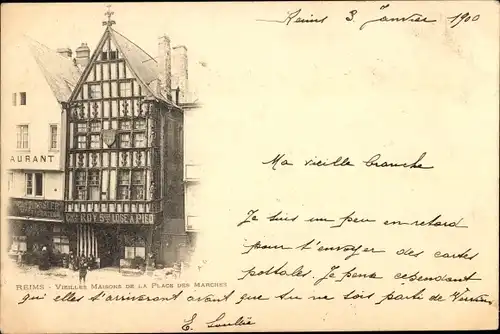 Reims 3 Janvier 1900
AURANT
Ma vieille branche
Je suis un peu en retard
pour t'envoyer des cartes
postales. Je pense cependant
REIMS - VIEILLES MAISONS DE LA PLACE DES MARCHÉS
qu'elles t'arriveront avant que tu ne sois parti de
E.